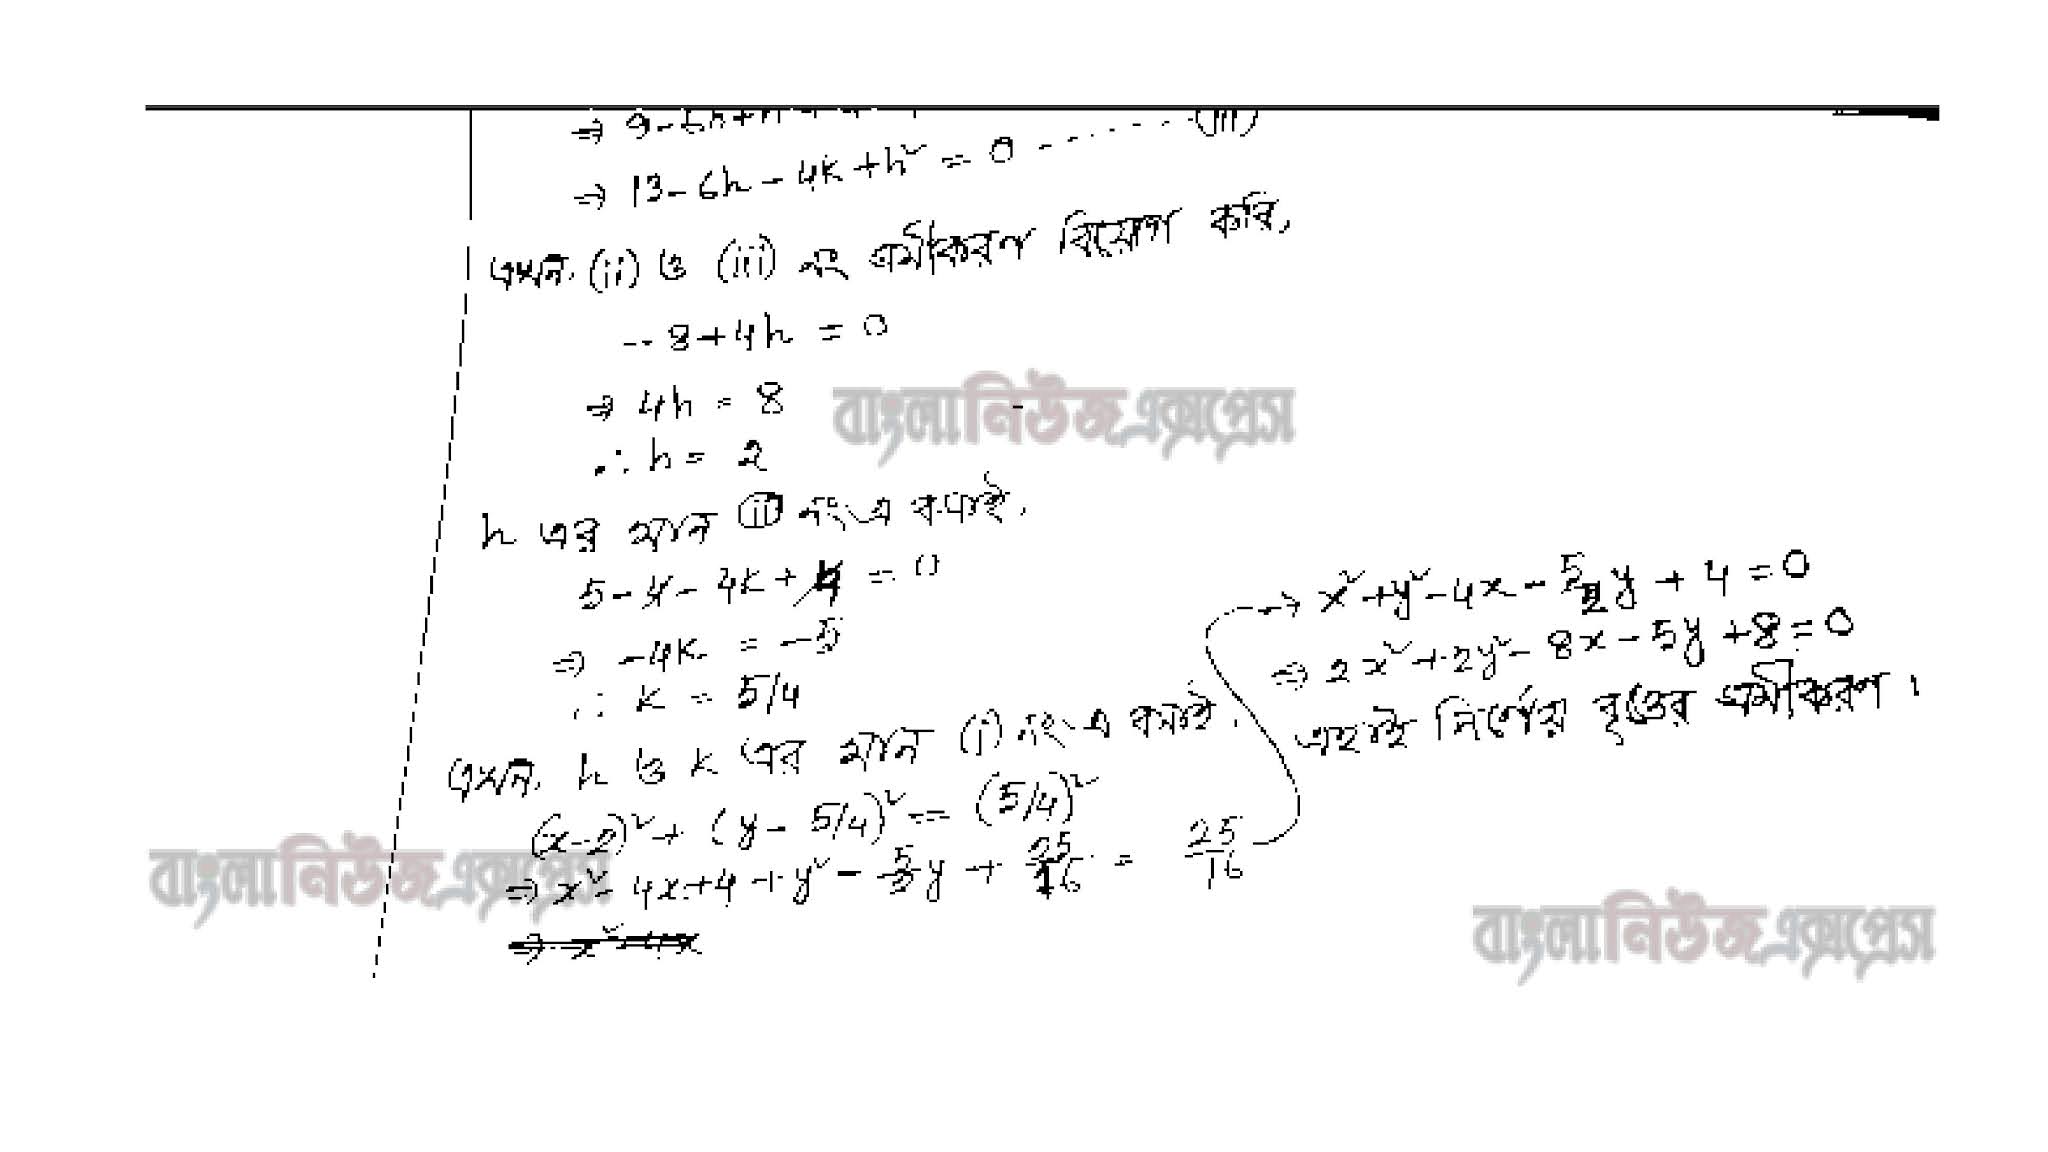 ⇒ 13 - 6h - 4k + h² = 0 ------- (iii)
এখন, (ii) ও (iii) নং সমীকরণ বিয়োগ করি,
-8 + 4h = 0
⇒ 4h = 8
∴ h = 2
h এর মান (ii) নং এ বসাই,
5 - 4 - 4k + 4 = 0
⇒ -4k = -5
∴ k = 5/4
এখন, h ও k এর মান (i) নং এ বসাই,
(x-2)² + (y - 5/4)² = (5/4)²
⇒ x² - 4x + 4 + y² - 5/2 y + 25/16 = 25/16
⇒ x² - 4x
→ x² + y² - 4x - 5/2 y + 4 = 0
⇒ 2x² + 2y² - 8x - 5y + 8 = 0
এটাই নির্ণেয় বৃত্তের সমীকরণ।
বাংলানিউজএক্সপ্রেস
বাংলানিউজএক্সপ্রেস
বাংলানিউজএক্সপ্রেস